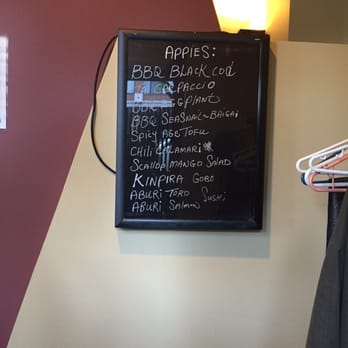 APPIES:
BBQ BLACK COD
CARPACCIO
BBQ EGGPLANT
BBQ SEASNAIL-BAIGAI
SPICY AGE TOFU
CHILI CALAMARI
SCALLOP MANGO SALAD
KINPIRA GOBO
ABURI TORO SUSHI
ABURI SALMON